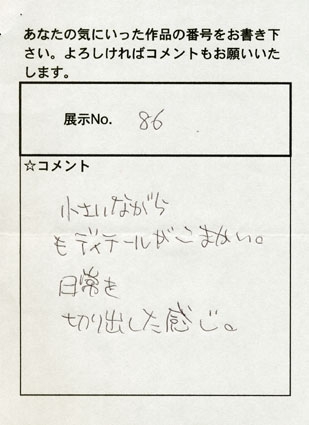 あなたの気にいった作品の番号をお書き下
さい。よろしければコメントもお願いいた
します。
展示No. 86
☆コメント
小さいながら
もディテールがこまかい。
日常を
切り出した感じ。